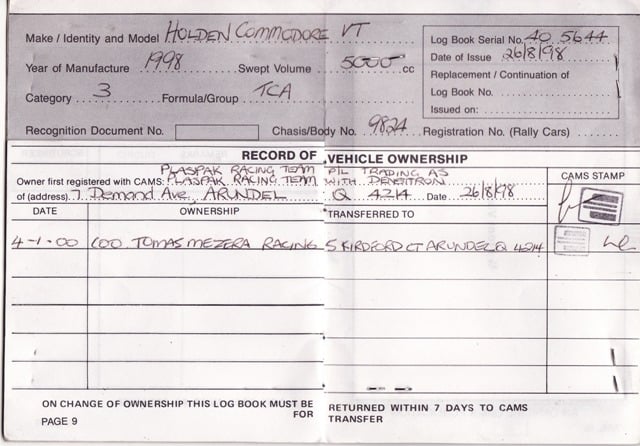 Make / Identity and Model HOLDEN COMMODORE VT
Log Book Serial No. 40 5644
Year of Manufacture 1998 Swept Volume 5000 cc
Date of Issue 26/8/98
Replacement / Continuation of
Category 3 Formula/Group TCA
Log Book No.
Issued on:
Recognition Document No. Chassis/Body No. 9824 Registration No. (Rally Cars)
RECORD OF VEHICLE OWNERSHIP
PLASPAK RACING TEAM P/L TRADING AS
CAMS STAMP
Owner first registered with CAMS: PLASPAK RACING TEAM WITH
of (address) 7 Demond Ave, ARUNDEL Q 4214 Date 26/8/98
DATE OWNERSHIP TRANSFERRED TO
4-1-00 TOMAS MEZERA RACING 5 KIRDFORD CT ARUNDEL Q 4214
ON CHANGE OF OWNERSHIP THIS LOG BOOK MUST BE RETURNED WITHIN 7 DAYS TO CAMS
FOR TRANSFER
PAGE 9